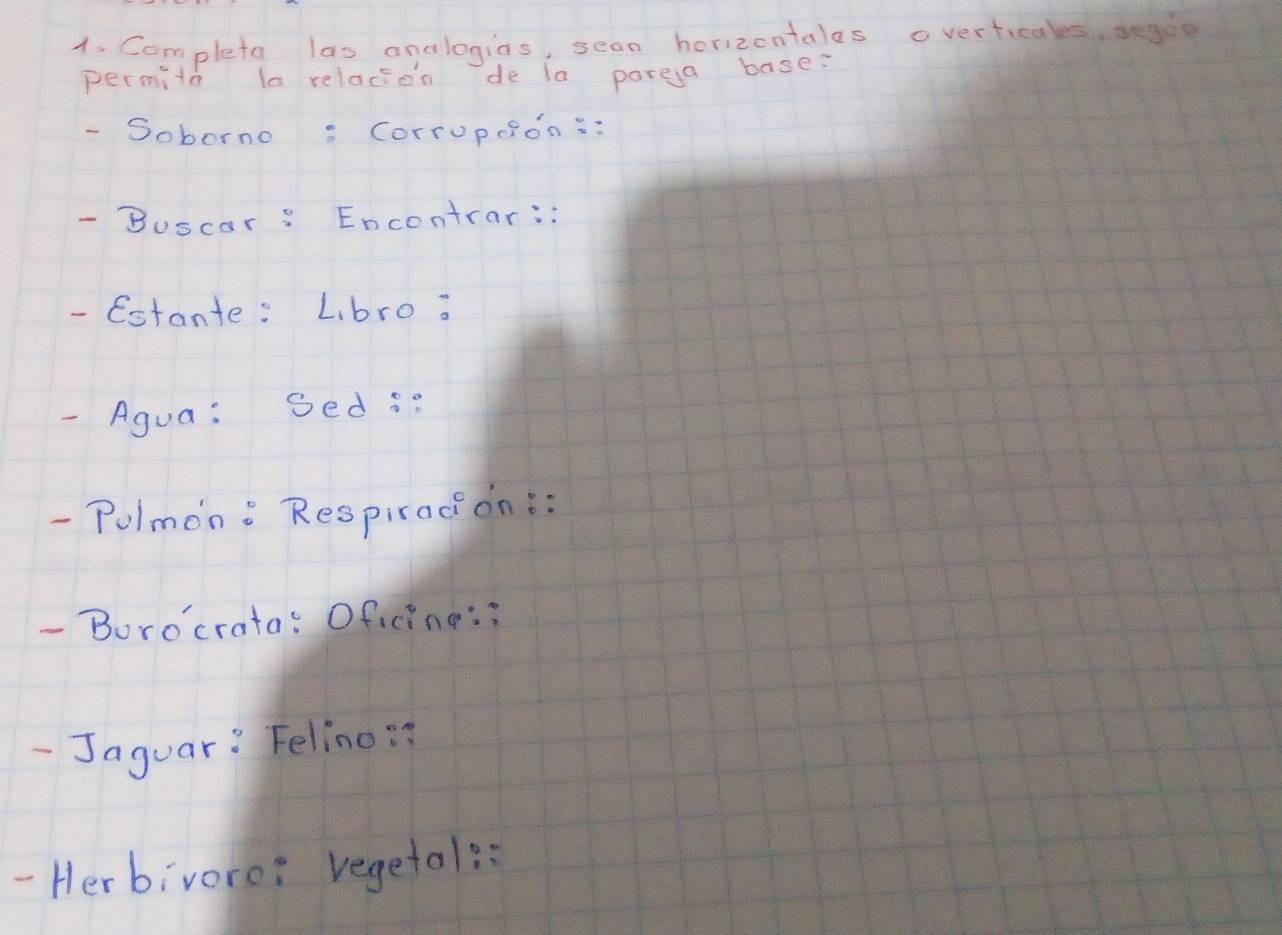 1. Completa las analogías, sean horizontales o verticales, según
permita la relación de la pareja base:
- Soborno : Corrupción ::
- Buscar : Encontrar ::
- Estante : Libro :
- Agua : Sed ::
- Pulmón : Respiración ::
- Burócrata : Oficina ::
- Jaguar : Felino ::
- Herbívoro : vegetal ::